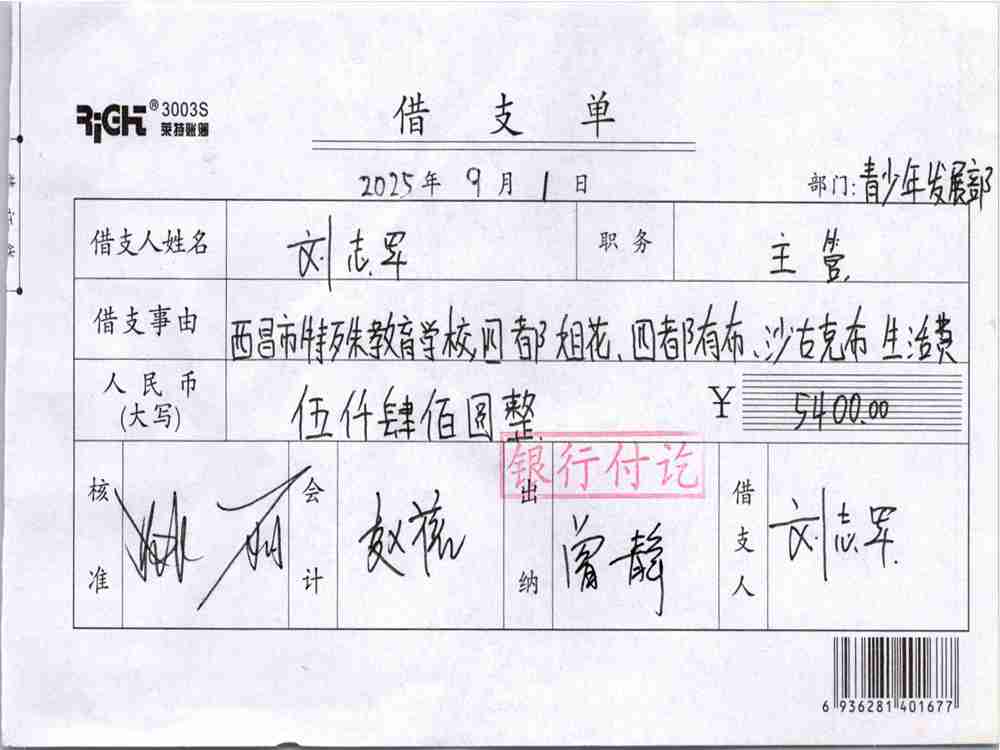 RiGHT® 3003S
莱特账簿
借支单
2025年9月1日 部门:青少年发展部
借支人姓名 刘志军 职务 主管
借支事由 西昌市特殊教育学校,四都姐花、四都有布、沙古克布生活费
人民币(大写) 伍仟肆佰圆整 ¥ 5400.00
银行付讫
核准 会计 出纳 曾静 借支人 刘志军
6 936281 401677